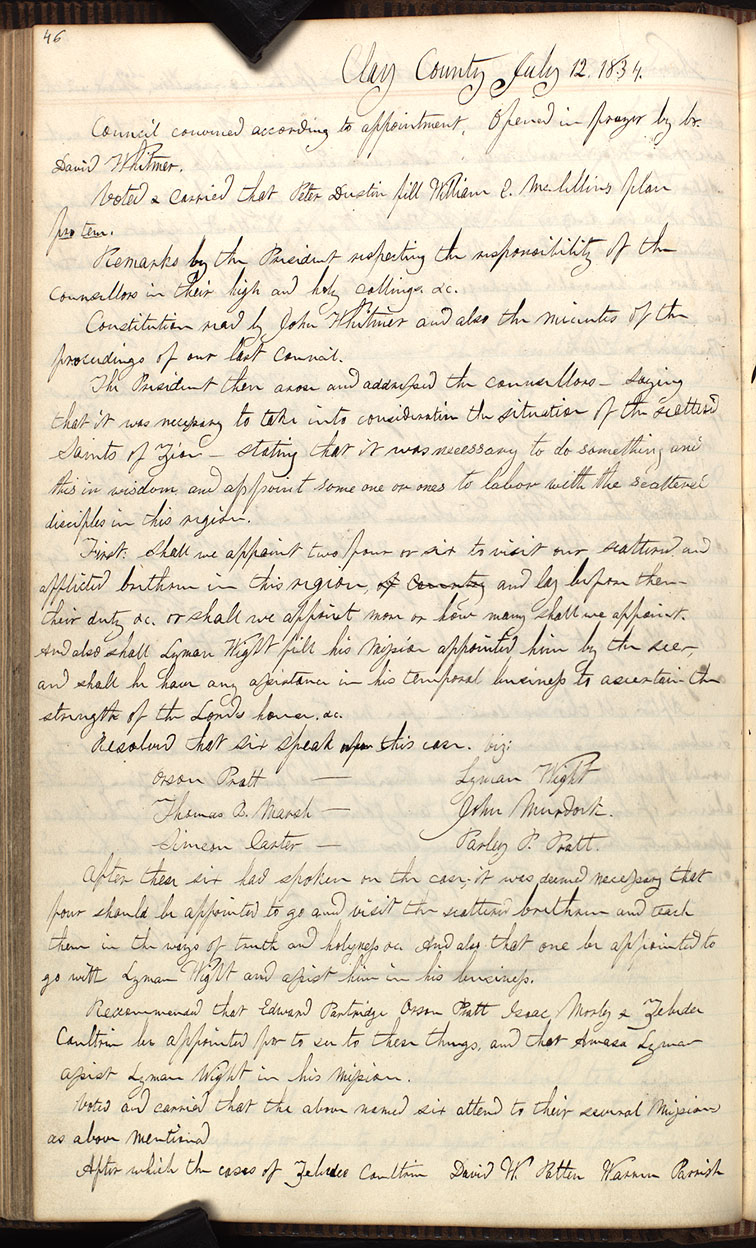 46
Clay County July 12. 1834.
Council convened according to appointment. Opened in prayer by br.
David Whitmer.
Voted & carried that Peter Dustin fill William E. Mc.lillins plan
pro tem.
Remarks by the President respecting the responsibility of the
counsellors in their high and holy callings. &c.
Constitution read by John Whitmer and also the minutes of the
proceedings of our last council.
The President then arose and addressed the counsellors — saying
that it was necessary to take into consideration the situation of the scattered
Saints of Zion — stating that it was necessary to do something and
this in wisdom and appoint some one or ones to labor with the scattered
disciples in this region.
First. Shall we appoint two four or six to visit our scattered and
afflicted brethren in this region, of Country and lay before them
their duty &c. or shall we appoint more or how many shall we appoint.
And also shall Lyman Wight fill his Mission appointed him by the seer,
and shall he have any assistance in his temporal business to ascertain the
strength of the Lord's house. &c.
Resolved that six speak upon this case. viz:
Orson Pratt — Lyman Wight
Thomas B. Marsh — John Murdock.
Simeon Carter — Parley P. Pratt.
After these six had spoken on the case, it was deemed necessary that
four should be appointed to go and visit the scattered brethren and teach
them in the ways of truth and holyness &c. And also that one be appointed to
go with Lyman Wight and assist him in his business.
Recommended that Edward Partridge Orson Pratt Isaac Morley & Zebedee
Coultrin be appointed for to see to these things, and that Amasa Lyman
assist Lyman Wight in his Mission.
Voted and carried that the above named six attend to their several Missions
as above mentioned
After which the cases of Zebedee Coultrin David W. Patten Warren Parrish